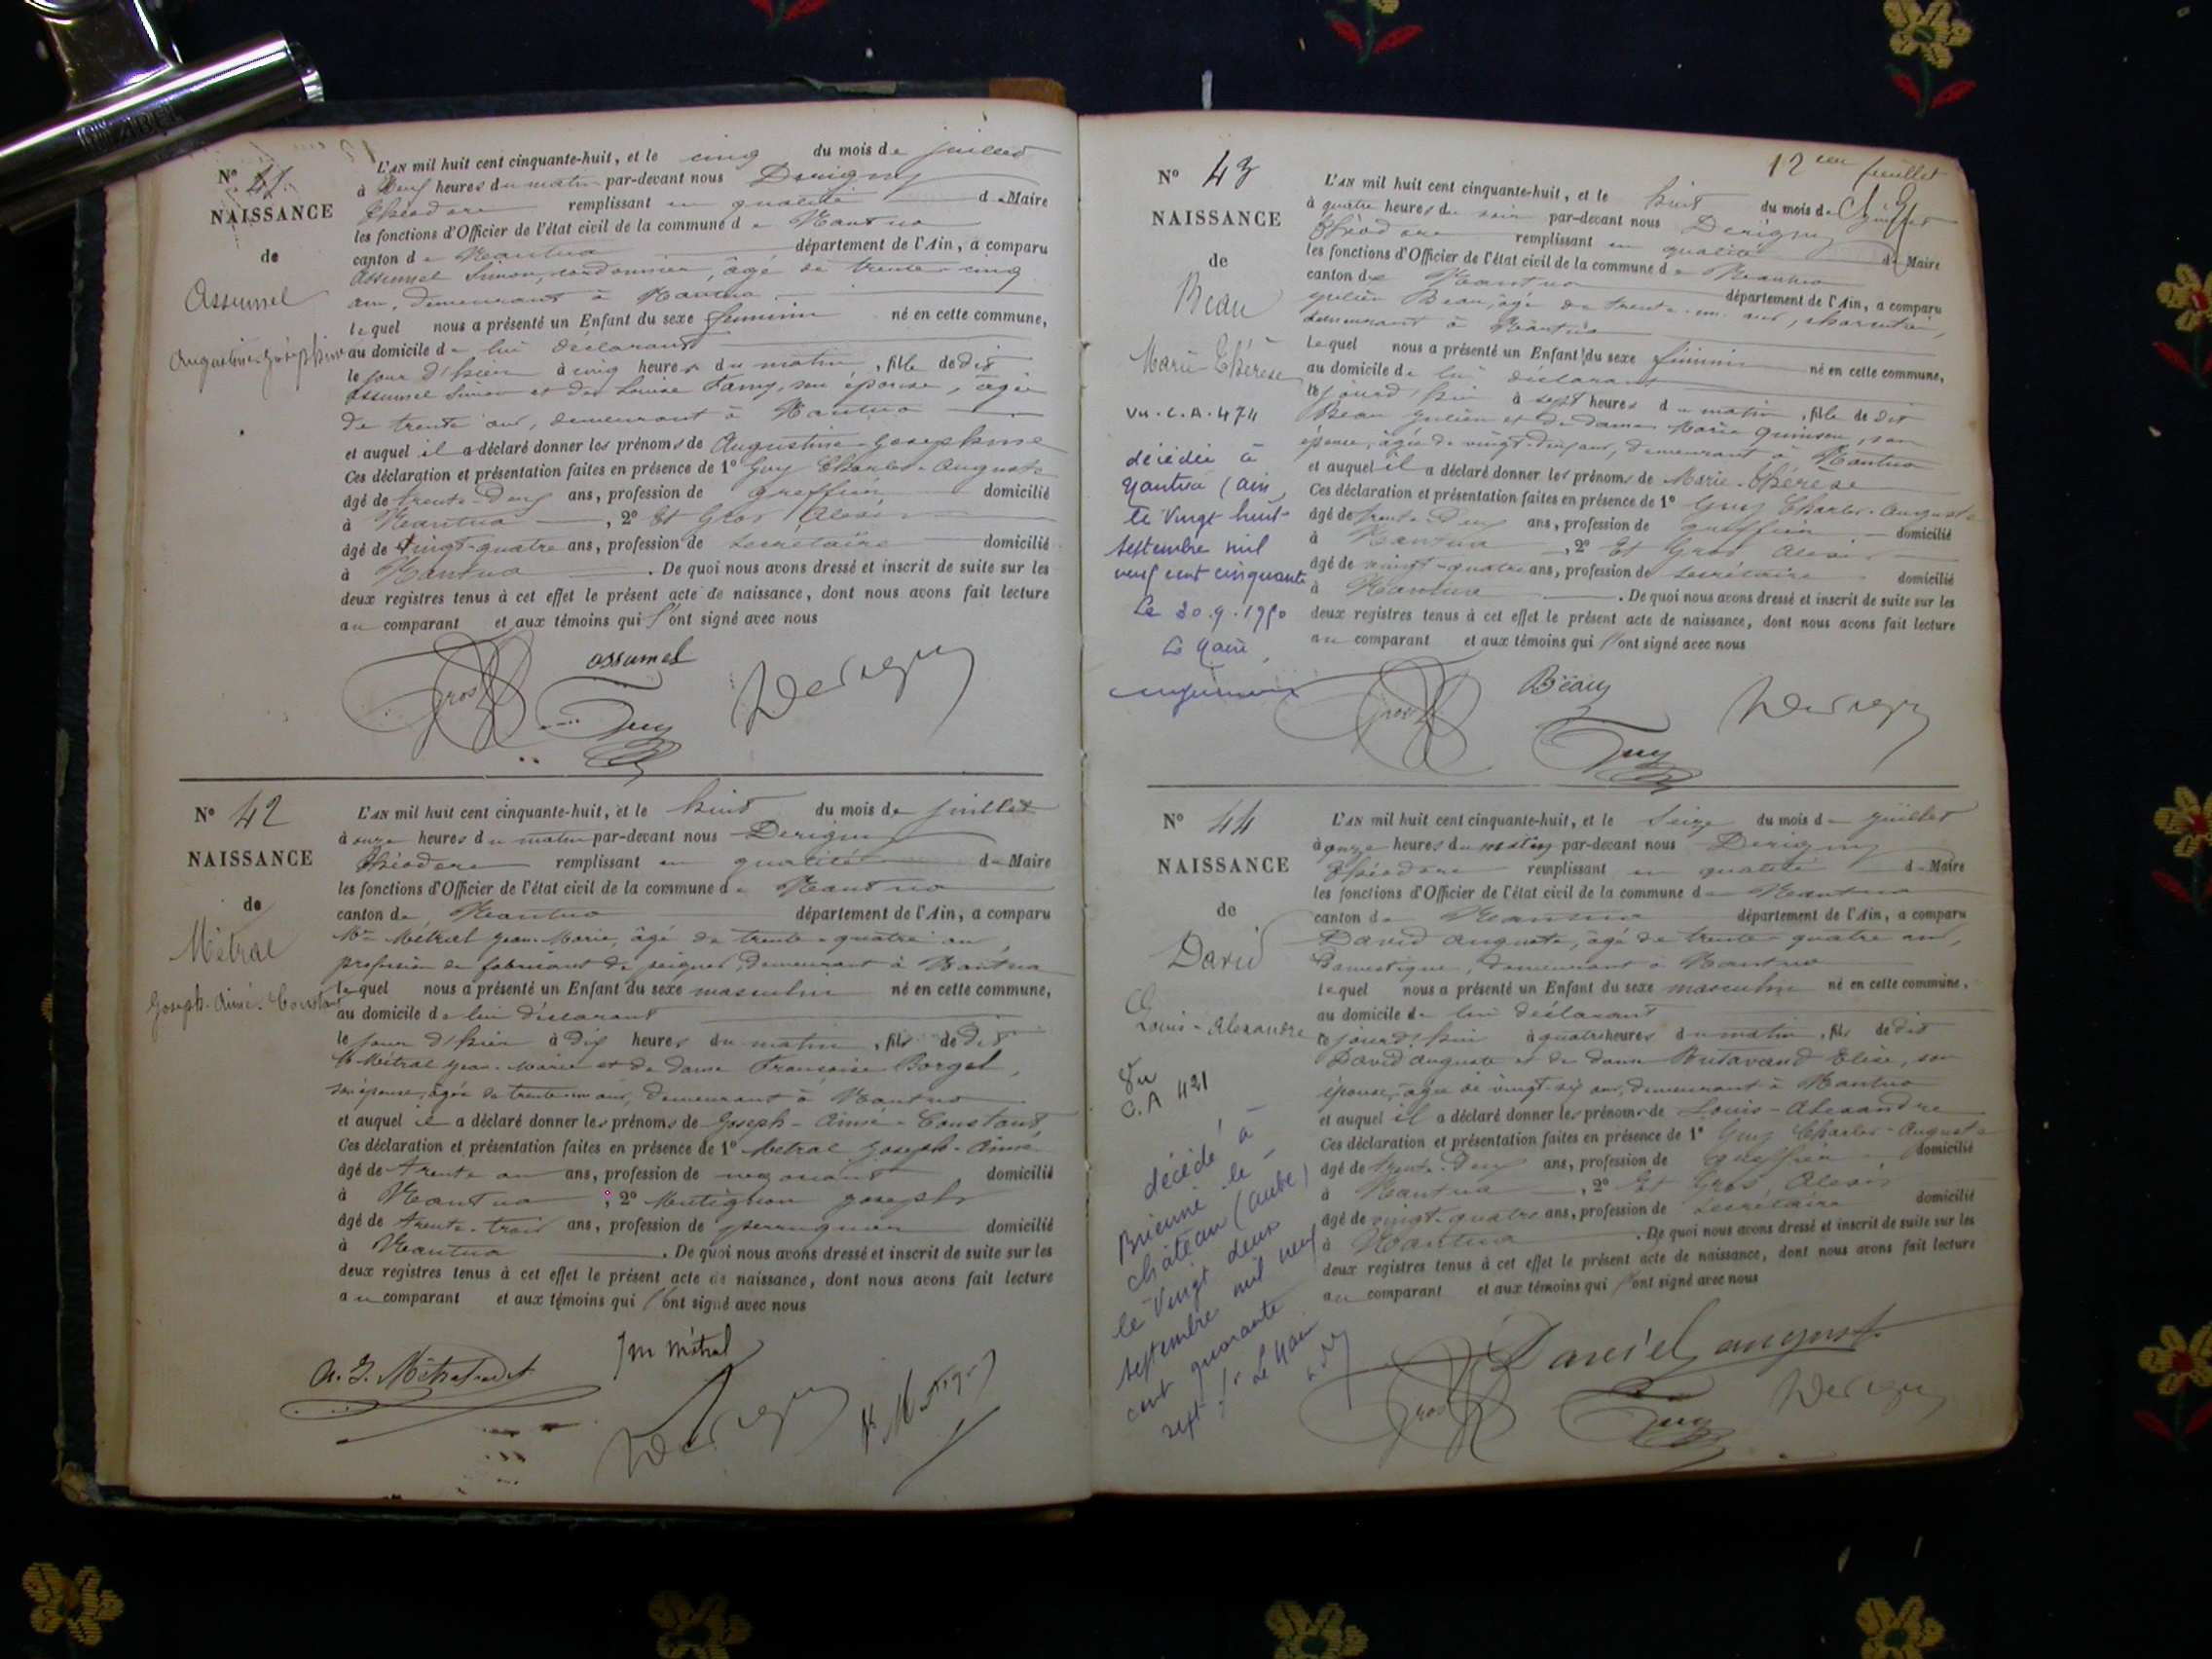 N° 41
NAISSANCE
de
Assumel
Augustine-Joséphine
L'AN mil huit cent cinquante-huit, et le cinq du mois de juillet
à heures du matin par-devant nous Derigny
Théodore remplissant en qualité de Maire
les fonctions d'Officier de l'état civil de la commune de Nantua
canton de Nantua département de l'Ain, a comparu
Assumel Simon, cordonnier, âgé de trente-cinq
ans, demeurant à Nantua
lequel nous a présenté un Enfant du sexe féminin né en cette commune,
au domicile de lui déclarant
le jour d'hier à cinq heures du matin, fille de dit
Assumel Simon et de Louise Famy, son épouse, âgée
de trente ans, demeurant à Nantua
et auquel il a déclaré donner les prénoms de Augustine-Joséphine
Ces déclaration et présentation faites en présence de 1° Guy Charles-Auguste
âgé de trente-deux ans, profession de greffier domicilié
à Nantua, 2° Et Gros Alexis
âgé de vingt-quatre ans, profession de secrétaire domicilié
à Nantua. De quoi nous avons dressé et inscrit de suite sur les
deux registres tenus à cet effet le présent acte de naissance, dont nous avons fait lecture
au comparant et aux témoins qui l'ont signé avec nous
assumel
Gros Guy Derigny
N° 42
NAISSANCE
de
Métral
Joseph-Aimé-Constant
L'AN mil huit cent cinquante-huit, et le huit du mois de juillet
à onze heures du matin par-devant nous Derigny
Théodore remplissant en qualité de Maire
les fonctions d'Officier de l'état civil de la commune de Nantua
canton de Nantua département de l'Ain, a comparu
Mr Métral Jean-Marie, âgé de trente-quatre ans,
profession de fabricant de peignes, demeurant à Nantua
lequel nous a présenté un Enfant du sexe masculin né en cette commune,
au domicile de lui déclarant
le jour d'hier à dix heures du matin, fils de dit
Mr Métral Jean-Marie et de dame Françoise Borget,
son épouse, âgée de trente-un ans, demeurant à Nantua
et auquel il a déclaré donner les prénoms de Joseph-Aimé-Constant
Ces déclaration et présentation faites en présence de 1° Métral Joseph-Aimé
âgé de trente ans, profession de négociant domicilié
à Nantua, 2° Joseph
âgé de trente-trois ans, profession de perruquier domicilié
à Nantua. De quoi nous avons dressé et inscrit de suite sur les
deux registres tenus à cet effet le présent acte de naissance, dont nous avons fait lecture
au comparant et aux témoins qui l'ont signé avec nous
Jm métral
Derigny
12ème feuillet
N° 43
NAISSANCE
de
Béau
Marie-Thérèse
Vu. C.A. 474
décédée à
Nantua (Ain)
le Vingt huit
septembre mil
neuf cent cinquante
Le 30.9.1950
Le Maire,
L'AN mil huit cent cinquante-huit, et le huit du mois de juillet
à quatre heures du soir par-devant nous Derigny
Théodore remplissant en qualité de Maire
les fonctions d'Officier de l'état civil de la commune de Nantua
canton de Nantua département de l'Ain, a comparu
Julien Béau, âgé de trente-un ans, charcutier,
demeurant à Nantua
Lequel nous a présenté un Enfant du sexe féminin né en cette commune,
au domicile de lui déclarant
ce jourd'hui à sept heures du matin, fille de dit
Béau Julien et de dame Marie, son
épouse, âgée de ans, demeurant à Nantua
et auquel il a déclaré donner les prénoms de Marie-Thérèse
Ces déclaration et présentation faites en présence de 1° Guy Charles-Auguste
âgé de trente-deux ans, profession de greffier domicilié
à Nantua, 2° Et Gros Alexis
âgé de vingt-quatre ans, profession de secrétaire domicilié
à Nantua. De quoi nous avons dressé et inscrit de suite sur les
deux registres tenus à cet effet le présent acte de naissance, dont nous avons fait lecture
au comparant et aux témoins qui l'ont signé avec nous
Gros Béau Derigny
Guy
N° 44
NAISSANCE
de
David
Louis-Alexandre
Vu
C.A 421
décédé à
Brienne le
château (Aube)
le Vingt deux
septembre mil neuf
cent quarante
sept. Le Maire
L'AN mil huit cent cinquante-huit, et le seize du mois de juillet
à onze heures du matin par-devant nous Derigny
Théodore remplissant en qualité de Maire
les fonctions d'Officier de l'état civil de la commune de Nantua
canton de Nantua département de l'Ain, a comparu
David Auguste, âgé de trente-quatre ans,
Domestique, demeurant à Nantua
lequel nous a présenté un Enfant du sexe masculin né en cette commune,
au domicile de lui déclarant
ce jourd'hui à quatre heures du matin, fils de dit
David Auguste et de dame Butavand Elise, son
épouse, âgée de vingt-six ans, demeurant à Nantua
et auquel il a déclaré donner les prénoms de Louis-Alexandre
Ces déclaration et présentation faites en présence de 1° Guy Charles-Auguste
âgé de trente-deux ans, profession de greffier domicilié
à Nantua, 2° Et Gros Alexis
âgé de vingt-quatre ans, profession de secrétaire domicilié
à Nantua. De quoi nous avons dressé et inscrit de suite sur les
deux registres tenus à cet effet le présent acte de naissance, dont nous avons fait lecture
au comparant et aux témoins qui l'ont signé avec nous
Daviel august
Gros Guy Derigny